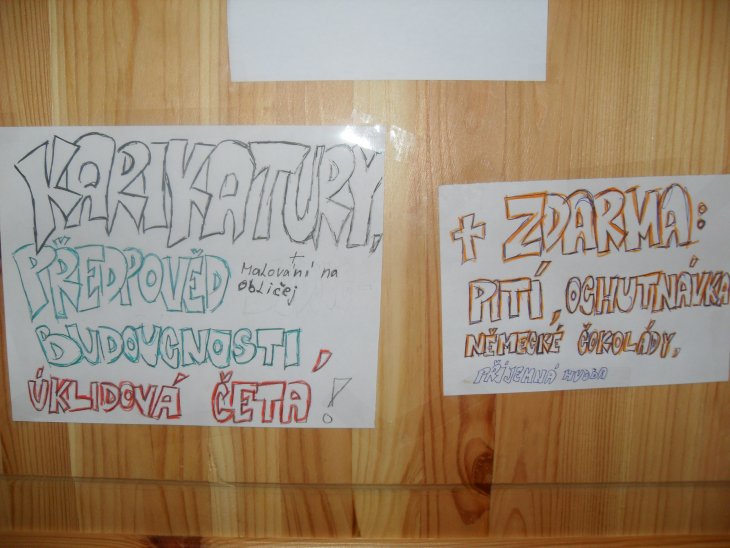 KARIKATURY,
PŘEDPOVĚĎ
+ Malování na
obličej
BUDOUCNOSTI,
ÚKLIDOVÁ ČETA!
+ ZDARMA:
PITÍ, OCHUTNÁVKA
NĚMECKÉ ČOKOLÁDY,
PŘÍJEMNÁ HUDBA